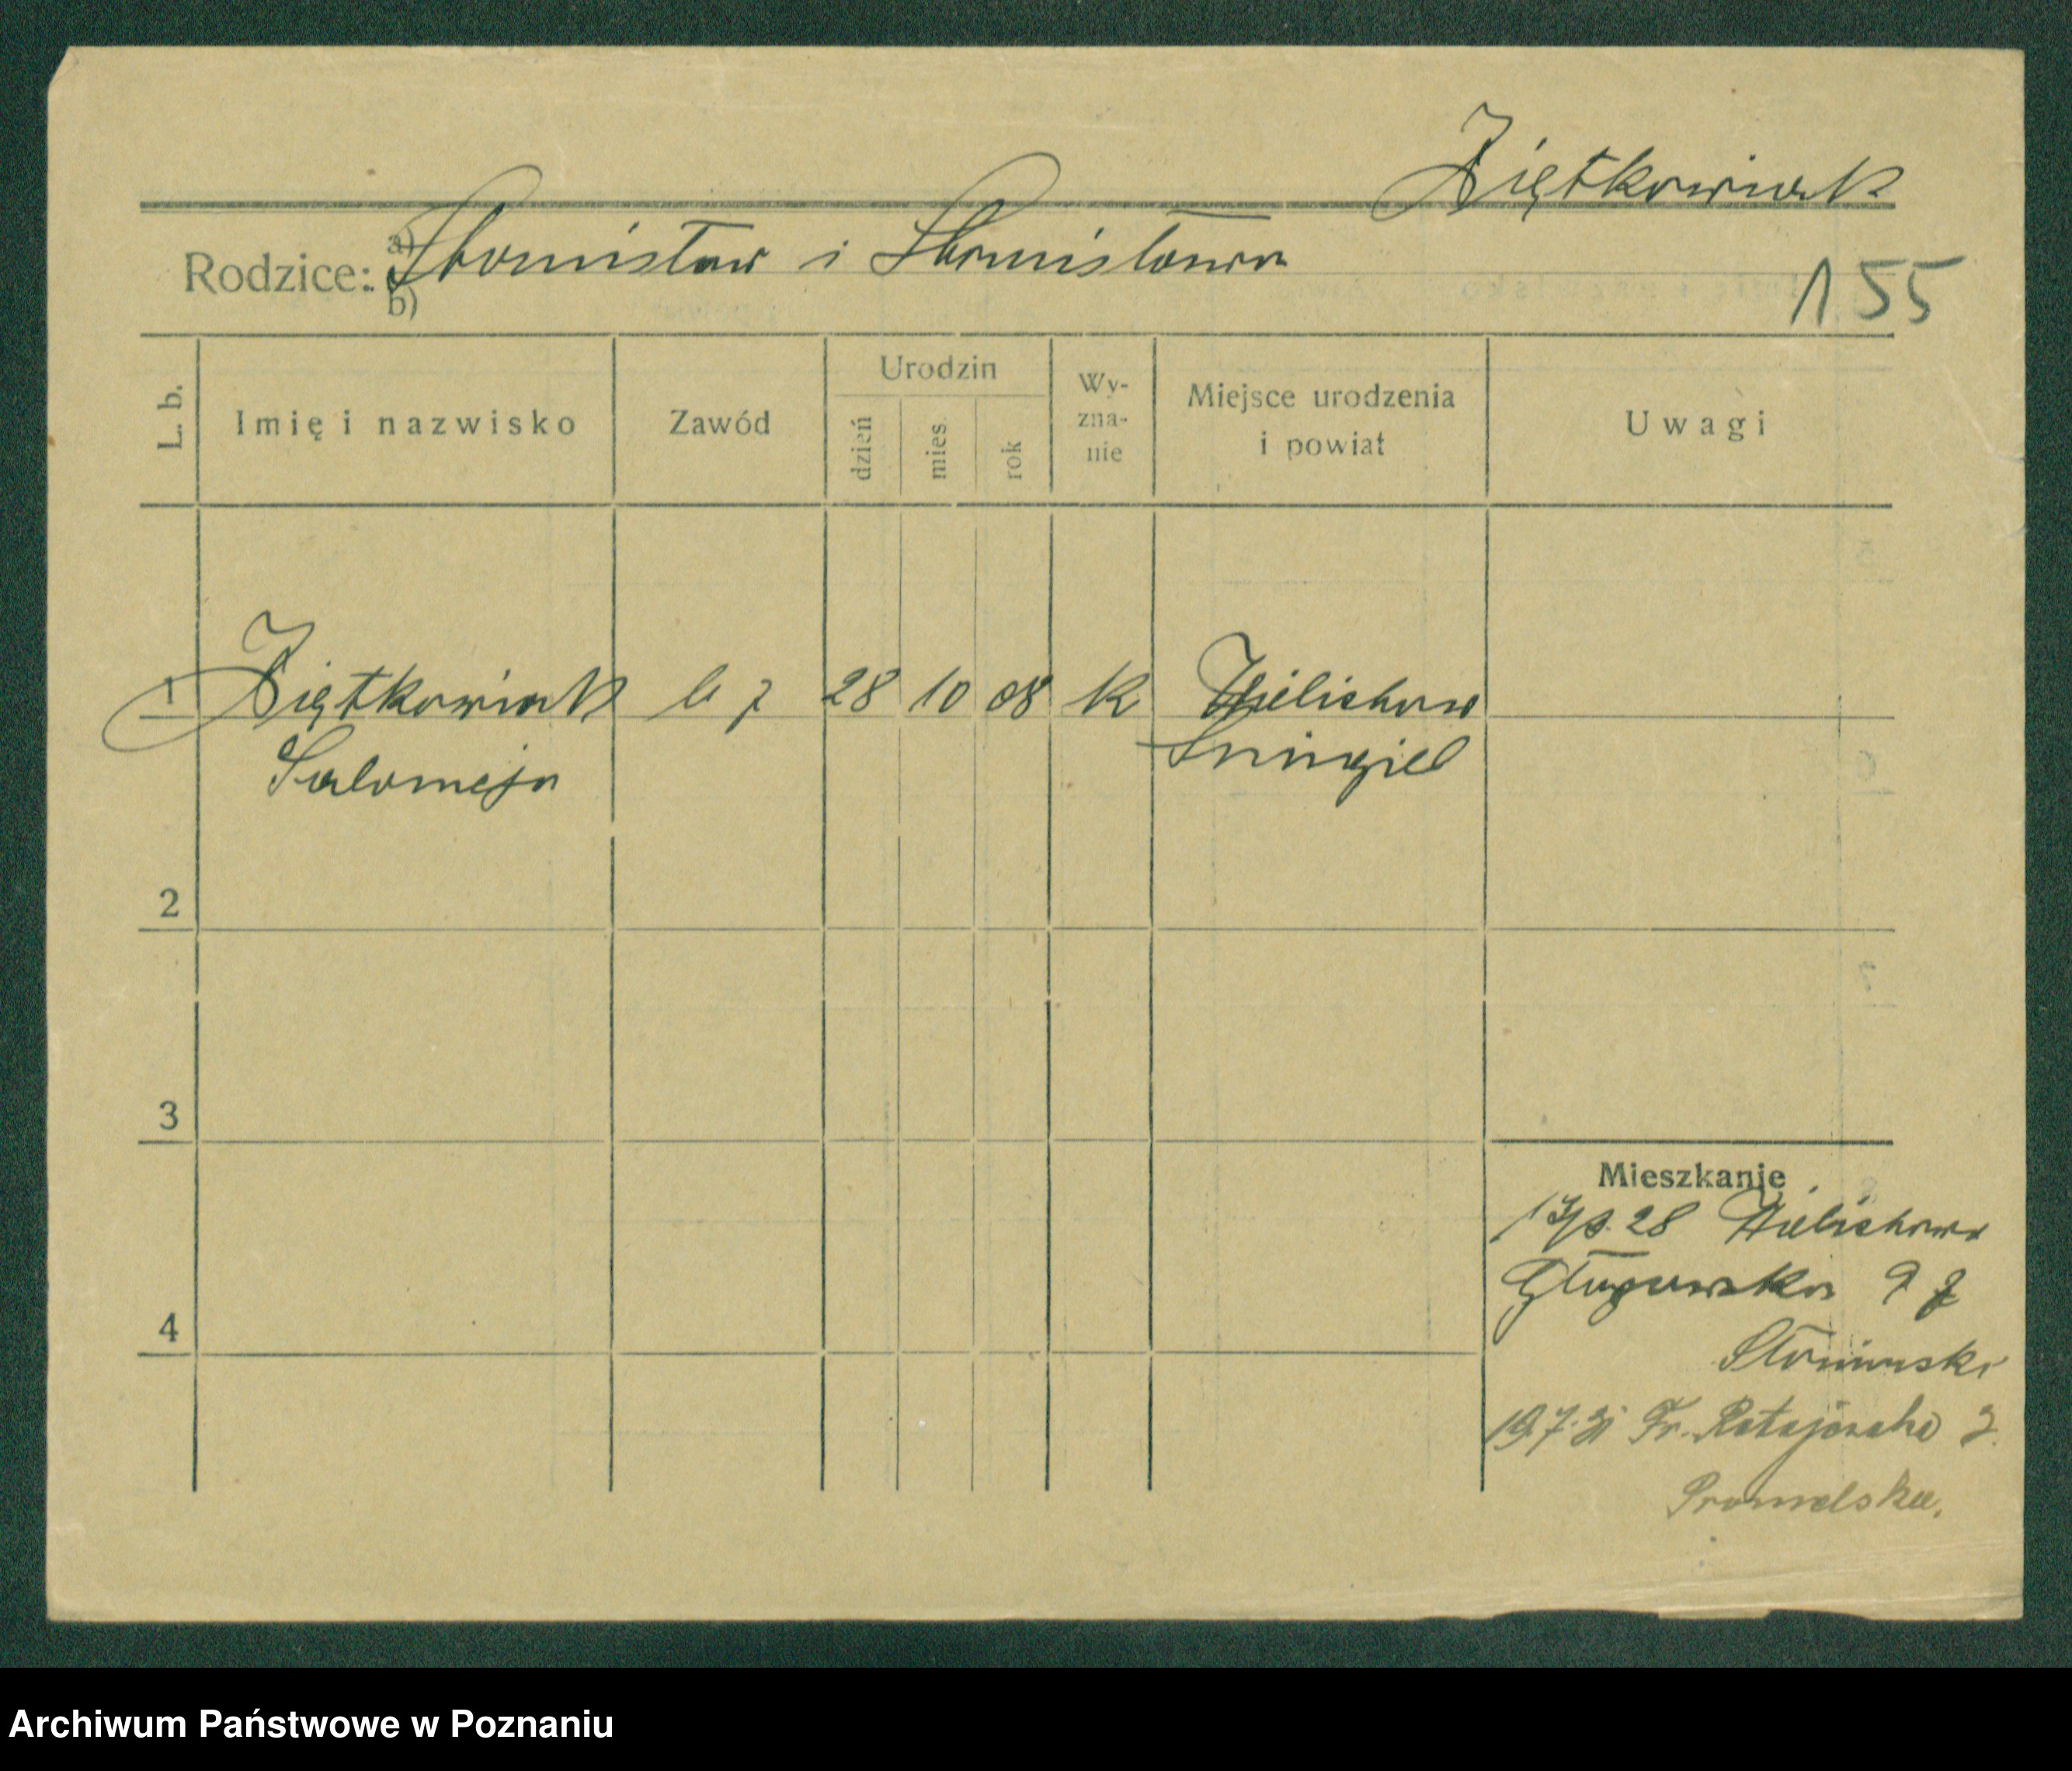 Ziętkowiak
Rodzice: a) Stanisław i Stanisława
b)
155
L. b.
Imię i nazwisko
Zawód
Urodzin
dzień
mies.
rok
Wy-
zna-
nie
Miejsce urodzenia
i powiat
Uwagi
1 Ziętkowiak 28 10 08 K Wielichowo
Salomeja Śmigiel
2
3
4
Mieszkanie
28 Wielichowo
Głogowska
19.7.31 Fr. Ratajczaka
Archiwum Państwowe w Poznaniu